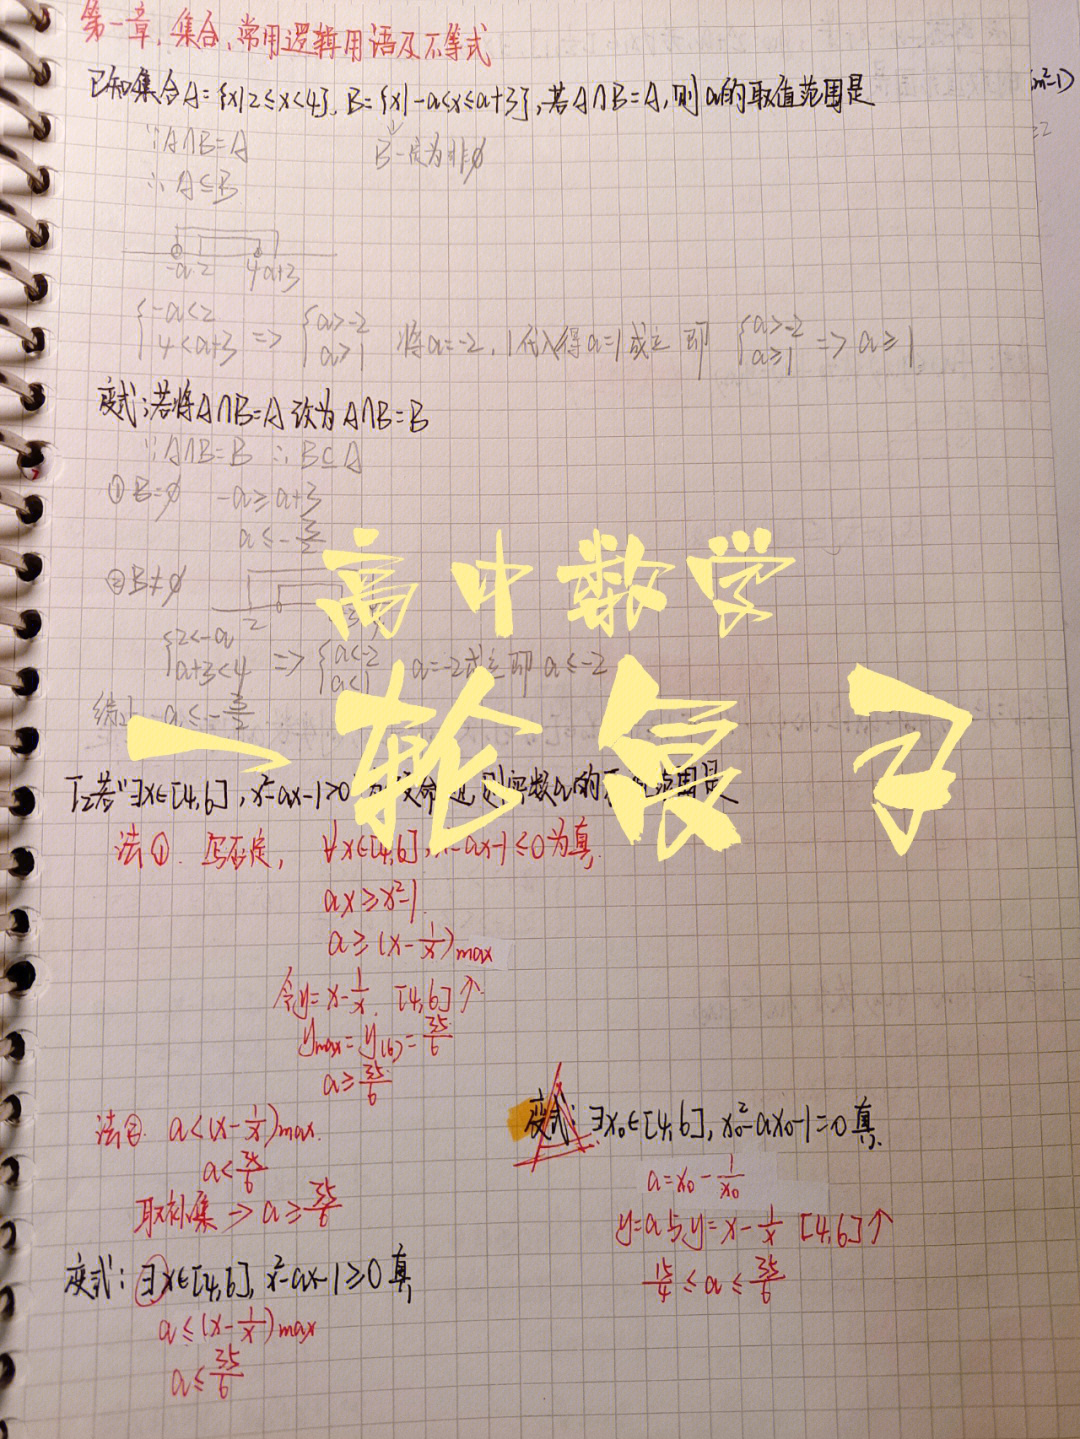 第一章、集合、常用逻辑用语及不等式
已知集合A={x|2≤x<4}, B={x|-a<x≤a+3},若A∩B=A,则a的取值范围是
m²-1)
∵A∩B=A
B一定为非∅
∴A⊆B
-a 2 4 a+3
{-a<2 4<a+3 => {a>-2 a>1 将a=-2,1代入得a=1成立 即 {a>-2 a≥1 => a≥1
变式:若将A∩B=A改为A∩B=B
∵A∩B=B ∴B⊆A
①B=∅ -a≥a+3
a≤-3/2
②B≠∅
2
{2<-a a+3<4 => {a<-2 a<1 a=-2成立 即 a≤-2
综上 a≤-3/2
高中数学
一轮复习
T2若"∃x∈[4,6], x²-ax-1>0"为假命题,则实数a的取值范围是
法① 写否定, ∀x∈[4,6], x²-ax-1≤0为真.
ax≥x²-1
a≥(x-1/x)max
令y=x-1/x, [4,6]↑
ymax=y(6)=35/6
a≥35/6
法② a<(x-1/x)max.
a<35/6
取补集→a≥35/6
变式: ∃x∈[4,6], x²-ax-1≥0真
a≤(x-1/x)max
a≤35/6
变式: ∃x₀∈[4,6], x₀²-ax₀-1=0真.
a=x₀-1/x₀
y=a与y=x-1/x [4,6]↑
15/4≤a≤35/6